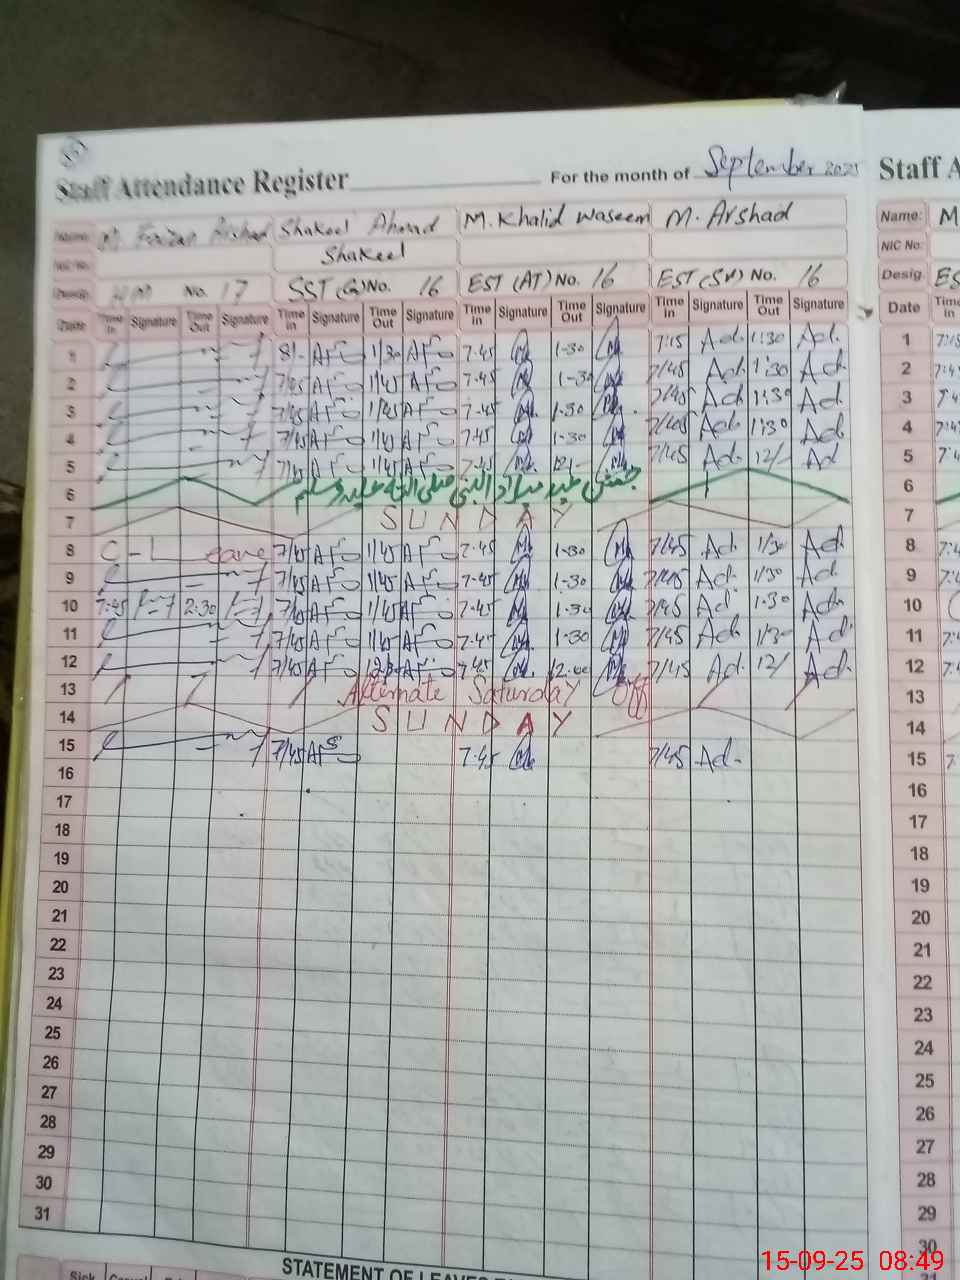 Staff Attendance Register For the month of September 2025
Name: M. Faizan Arshad Shakeel Ahmad M. Khalid Waseem M. Arshad
NIC No: Shakeel
Desig. HM No. 17 SST (G) No. 16 EST (AT) No. 16 EST (SV) No. 16
Date Time In Signature Time Out Signature Time In Signature Time Out Signature Time In Signature Time Out Signature Time In Signature Time Out Signature
1 8/- 1/30 7-45 1-30 7:15 Ad. 1:30 Ad.
2 7/45 1/45 7-45 1-30 7/45 Ad. 1:30 Ad
3 7/45 1/45 7-45 1-30 7/45 Ad 1:30 Ad
4 7/45 1/45 7-45 1-30 7/45 Ad 1:30 Ad
5 7/45 1/45 7-45 12/- 7/45 Ad. 12/- Ad
6 جشن عید میلاد النبی صلی اللہ علیہ وسلم
7 SUNDAY
8 C-Leave 7/45 1/45 7-45 1-30 7/45 Ad. 1/30 Ad
9 7/45 1/45 7-45 1-30 7/45 Ad. 1/30 Ad
10 7:45 2:30 7/45 1/45 7-45 1-30 7/45 Ad 1-30 Ad
11 7/45 1/45 7-45 1-30 7/45 Ad. 1/30 Ad
12 7/45 7-45 12-00 7/45 Ad. 12/ Ad.
13 Alternate Saturday Off
14 SUNDAY
15 7/45 7-45 7/45 Ad.
16
17
18
19
20
21
22
23
24
25
26
27
28
29
30
31
STATEMENT OF LEAVES
Sick Casual
Staff A
Name: M
NIC No:
Desig. ES
Date Time In
1
2
3
4
5
6
7
8
9
10
11
12
13
14
15
16
17
18
19
20
21
22
23
24
25
26
27
28
29
30
15-09-25 08:49